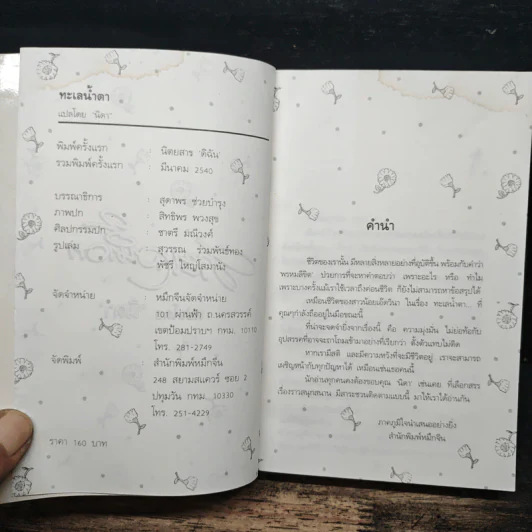 ทะเลน้ำตา
แปลโดย "นิดา"
พิมพ์ครั้งแรก : นิตยสาร 'ดิฉัน'
รวมพิมพ์ครั้งแรก : มีนาคม 2540
บรรณาธิการ : สุดาพร ช่วยบำรุง
ภาพปก : สิทธิพร พวงสุข
ศิลปกรรมปก : ชาตรี มณีวงศ์
รูปเล่ม : สุวรรณ ร่วมพันธ์ทอง
พัชรี ใหญ่โสมานัง
จัดจำหน่าย : หมึกจีนจัดจำหน่าย
101 ผ่านฟ้า ถ.นครสวรรค์
เขตป้อมปราบฯ กทม. 10110
โทร. 281-2749
จัดพิมพ์ : สำนักพิมพ์หมึกจีน
248 สยามสแควร์ ซอย 2
ปทุมวัน กทม. 10330
โทร. 251-4229
ราคา 160 บาท
คำนำ
ชีวิตของเรานั้น มีหลายสิ่งหลายอย่างที่อุบัติขึ้น พร้อมกับคำว่า
'พรหมลิขิต' ป่วยการที่จะหาคำตอบว่า เพราะอะไร หรือ ทำไม
เพราะบางครั้งแม้เราใช้เวลาถึงค่อนชีวิต ก็ยังไม่สามารถหาข้อสรุปได้
เหมือนชีวิตของสาวน้อยเอ็ดวีนา ในเรื่อง ทะเลน้ำตา... ที่
คุณๆกำลังถืออยู่ในมือขณะนี้
ที่น่าจะจดจำยิ่งจากเรื่องนี้ คือ ความมุ่งมั่น ไม่ย่อท้อกับ
อุปสรรคที่อาจจะถาโถมเข้ามาอย่างที่เรียกว่า ตั้งตัวแทบไม่ติด
หากเรามีสติ และมีความหวังที่จะมีชีวิตอยู่ เราจะสามารถ
เผชิญหน้ากับทุกปัญหาได้ เหมือนเช่นเธอคนนี้
นักอ่านทุกคนคงต้องขอบคุณ 'นิดา' เช่นเคย ที่เลือกสรร
เรื่องราวสนุกสนาน มีสาระชวนติดตามแบบนี้ มาให้เราได้อ่านกัน
ภาคภูมิใจนำเสนออย่างยิ่ง
สำนักพิมพ์หมึกจีน